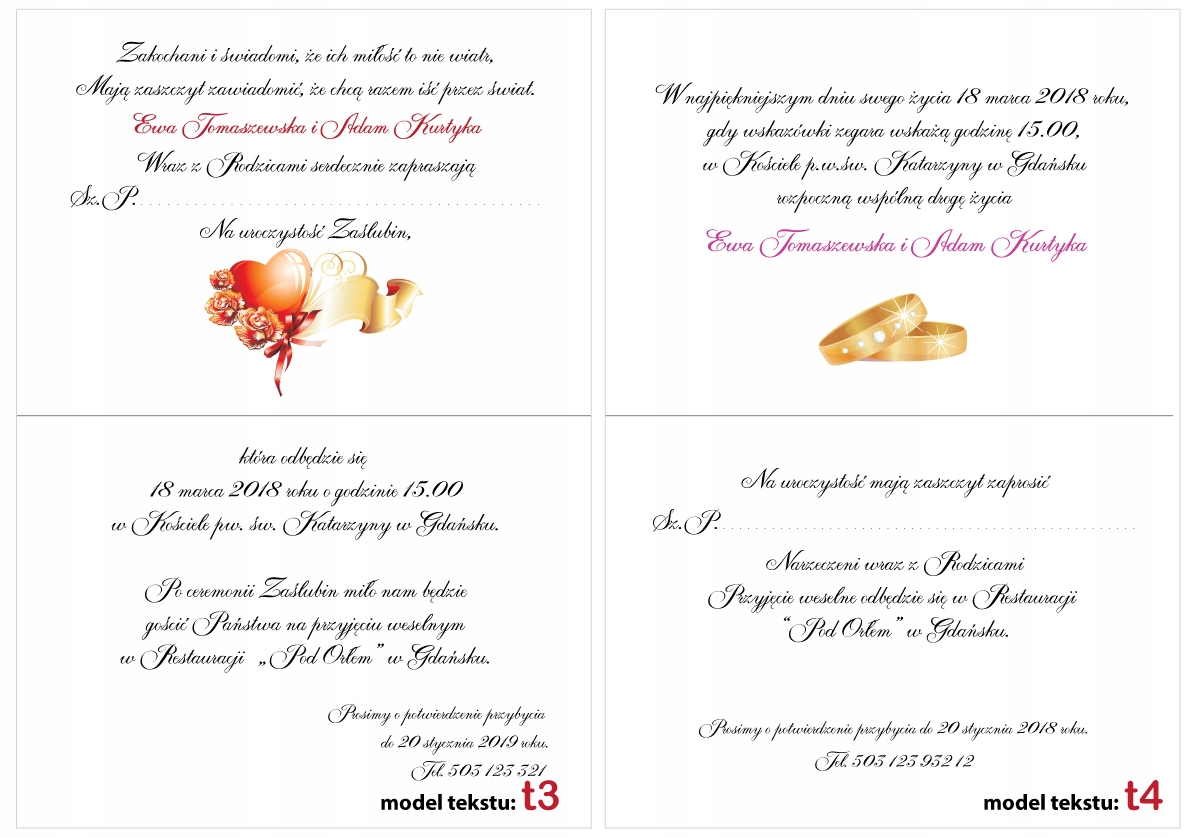 Zakochani i świadomi, że ich miłość to nie wiatr,
Mają zaszczyt zawiadomić, że chcą razem iść przez świat.
Ewa Tomaszewska i Adam Kurtyka
Wraz z Rodzicami serdecznie zapraszają
Sz.P. . . . . . . . . . . . . . . . . . . . . . . . . . . . . . . . . . . . . . . . . .
Na uroczystość Zaślubin,
która odbędzie się
18 marca 2018 roku o godzinie 15.00
w Kościele pw. św. Katarzyny w Gdańsku.
Po ceremonii Zaślubin miło nam będzie
gościć Państwa na przyjęciu weselnym
w Restauracji „Pod Orłem” w Gdańsku.
Prosimy o potwierdzenie przybycia
do 20 stycznia 2019 roku.
Tel. 503 123 321
model tekstu: t3
W najpiękniejszym dniu swego życia 18 marca 2018 roku,
gdy wskazówki zegara wskażą godzinę 15.00,
w Kościele p.w.św. Katarzyny w Gdańsku
rozpoczną wspólną drogę życia
Ewa Tomaszewska i Adam Kurtyka
Na uroczystość mają zaszczyt zaprosić
Sz.P. . . . . . . . . . . . . . . . . . . . . . . . . . . . . . . . . . . . . . . . . .
Narzeczeni wraz z Rodzicami
Przyjęcie weselne odbędzie się w Restauracji
“Pod Orłem” w Gdańsku.
Prosimy o potwierdzenie przybycia do 20 stycznia 2018 roku.
Tel. 503 123 932 12
model tekstu: t4